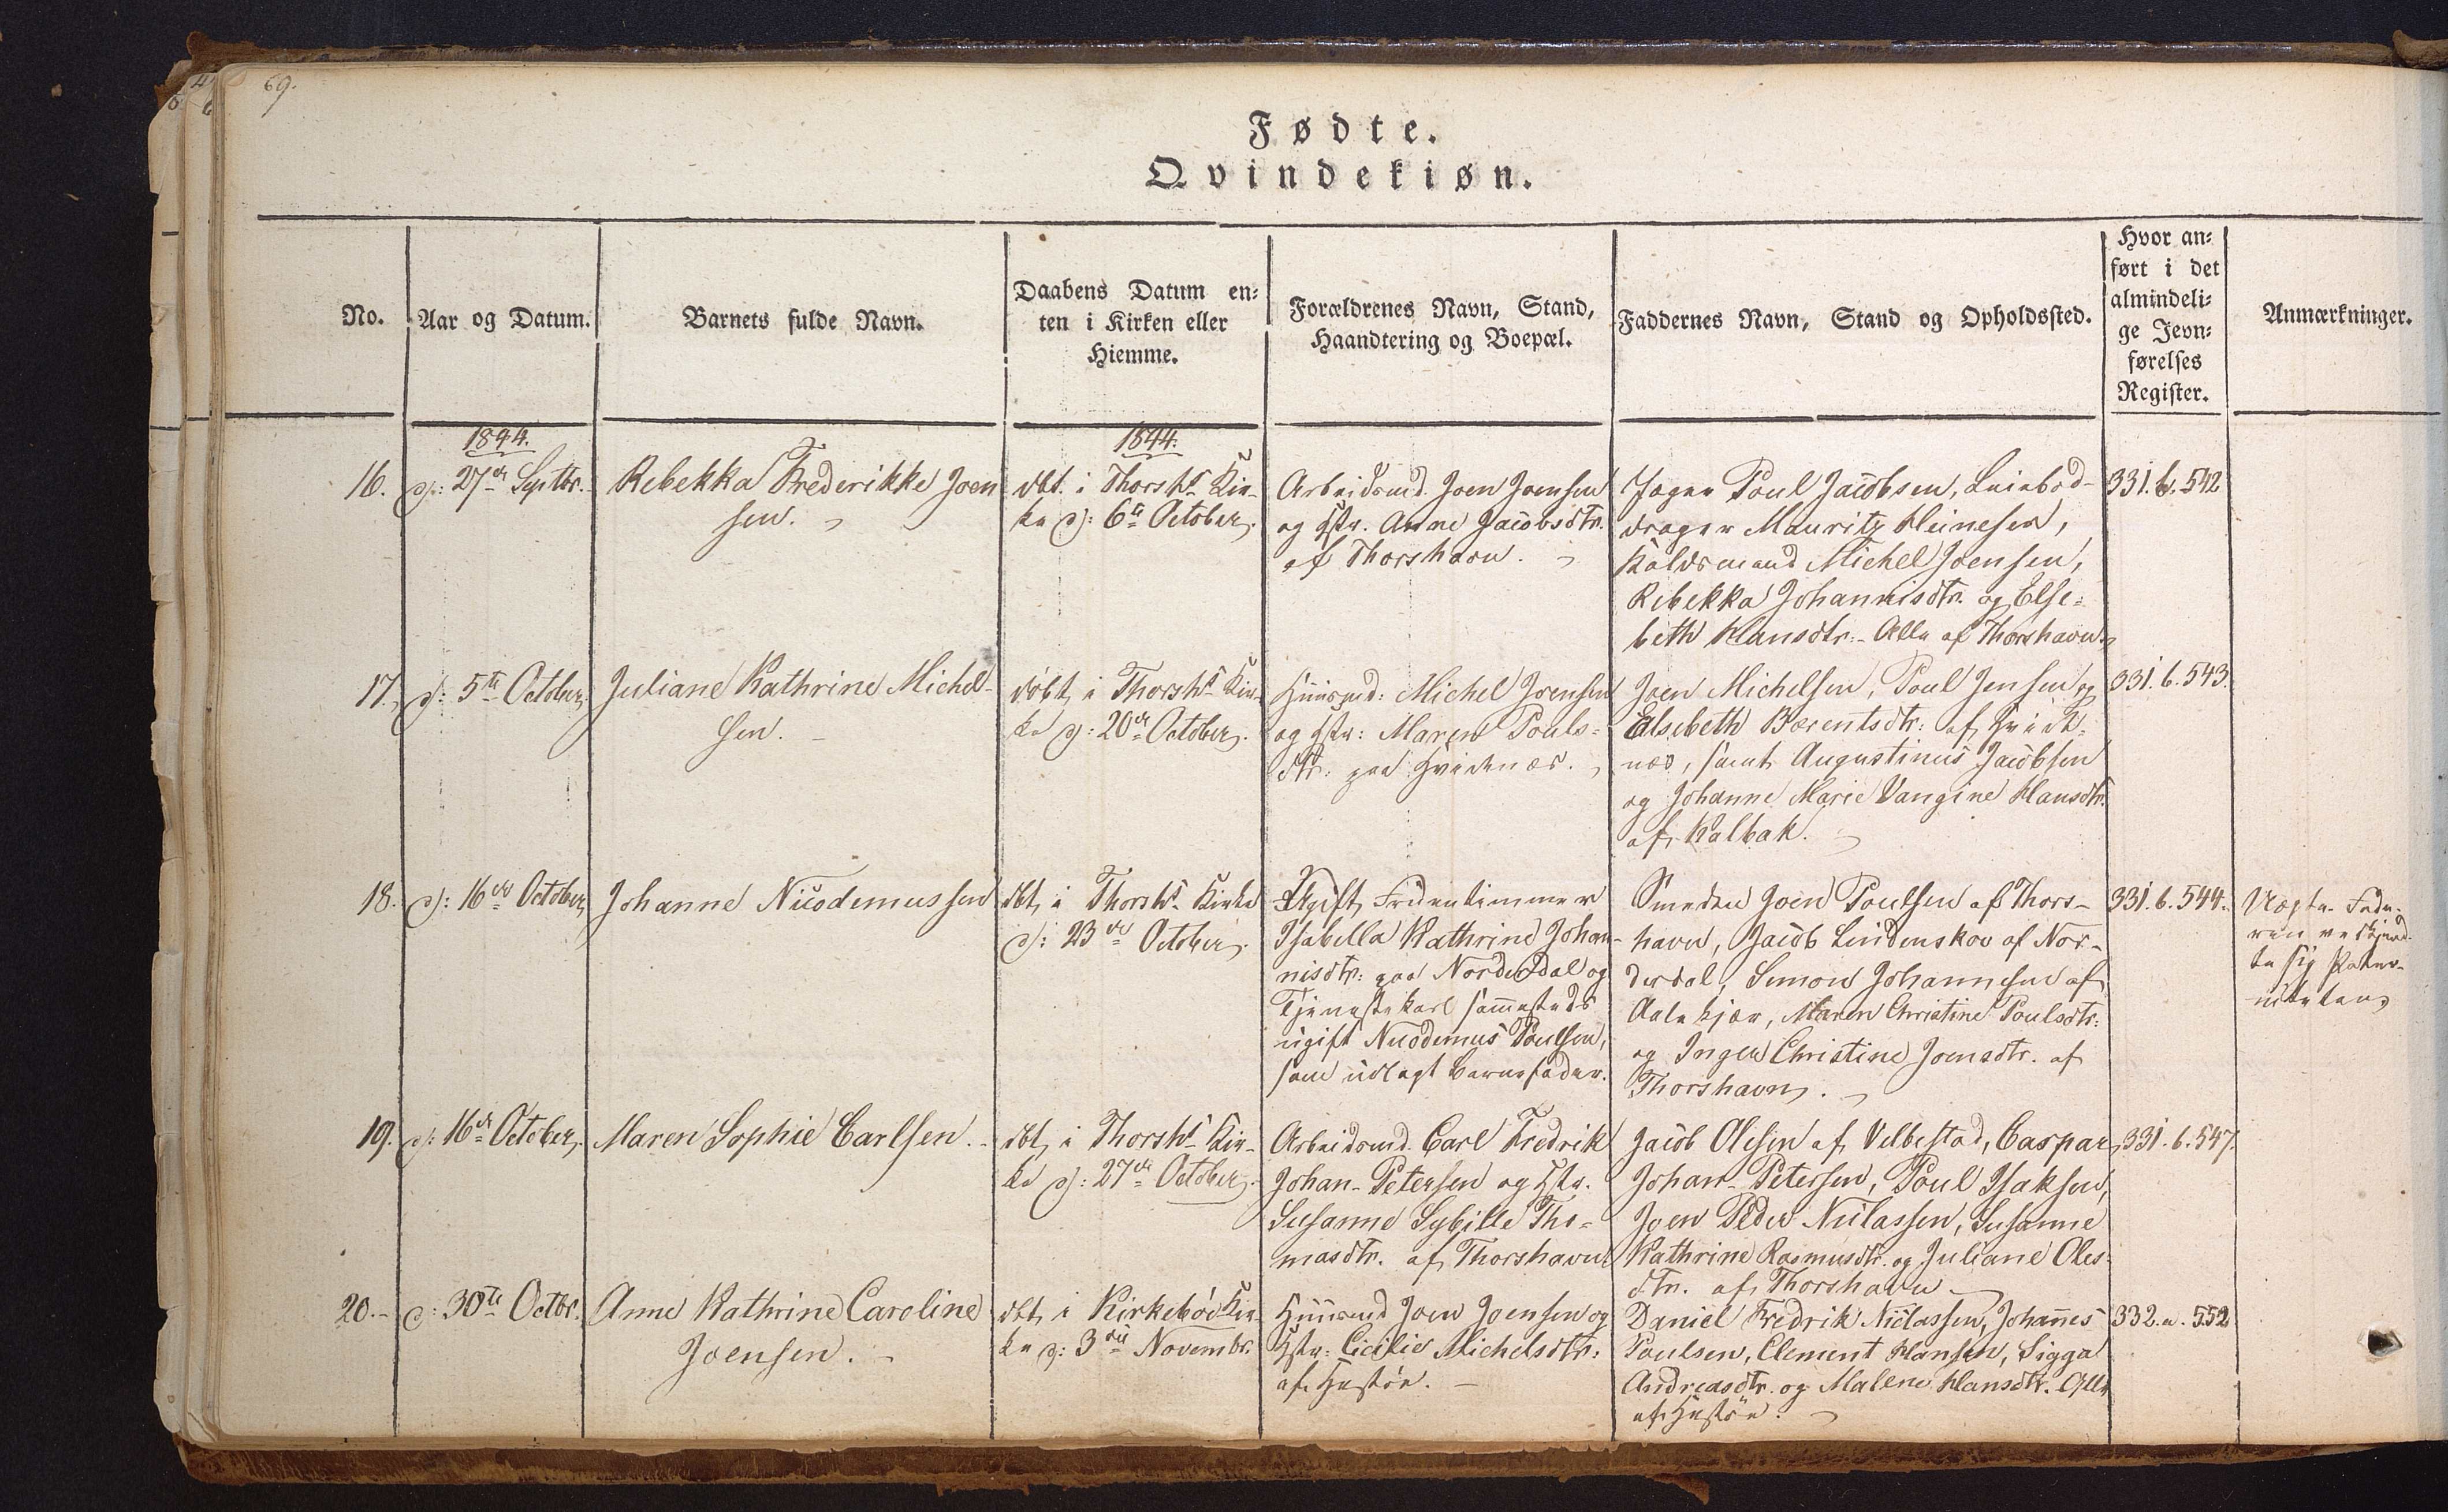 69.
Fødte.
Qvindekiøn.
No.
Aar og Datum.
Barnets fulde Navn.
Daabens Datum en-
ten i Kirken eller
Hiemme.
Forældrenes Navn, Stand,
Haandtering og Boepæl.
Faddernes Navn, Stand og Opholdssted.
Hvor an-
ført i det
almindeli-
ge Jevn-
førelses
Register.
Anmærkninger.
1844.
16.
d: 27de Septbr.
Rebekka Frederikke Joen
sen.
1844.
dbt. i Thorshs Kir-
ke d: 6te October.
Arbeidsmd. Joen Joensen
og Hstr. Anne Jacobsdtr.
af Thorshavn.
Jæger Poul Jacobsen,
drager Mauritz Heinesen,
Michel Joensen,
Rebekka Johannisdtr. og Else-
beth Hansdtr. - Alle af Thorshavn.
331. b. 542
17.
d: 5te October.
Juliane Kathrine Michel-
sen.
døbt i Thorshs Kir-
ke d: 20de October.
Huusmd: Michel Joensen
og Hstr: Maren Pouls-
dtr. paa Hvidenæs.
Joen Michelsen, Poul Jensen og
Elsebeth Bærentsdtr: af Hvide-
næs, samt Augustinus Jacobsen
og Johanne Marie Vangine Hansdtr.
af Kalbak.
331. b. 543.
18.
d: 16de October
Johanne Nicodemussen
dbt. i Thorshs Kirke
d: 23de October.
Ugift Fruentimmer
Isabella Kathrine Johan-
nisdtr: paa Norderdal og
Tjenestekarl sammesteds
ugift Nicodemus Poulsen,
som udlagt Barnefader.
Smeden Joen Poulsen af Thors-
havn, Jacob Lindenskov af Nor-
derdal, Simon Johannesen af
Aalekjær, Maren Christine Poulsdtr.
og Inger Christine Joensdtr. af
Thorshavn.
331. b. 544.
Fade-
ren vedkjend-
te sig Pater-
niteten
19.
d: 16de October.
Maren Sophie Carlsen.
dbt. i Thorshs Kir-
ke d: 27de October.
Arbeidsmd. Carl Fredrik
Johan-Petersen og Hstr.
Susanne Sybille Tho-
masdtr. af Thorshavn
Jacob Olesen af Velbestad, Caspar
Johan-Petersen, Poul Isaksen,
Joen Peder Niclassen, Susanne
Kathrine Rasmusdtr. og Juliane Oles-
dtr. af Thorshavn
331. b. 547.
20.
d: 30te Octbr.
Anne Kathrine Caroline
Joensen.
dbt. i Kirkebøe Kir-
ke d: 3die Novembr.
Huusmd Joen Joensen og
Hstr: Cicilie Michelsdtr:
af Hestøe.
Daniel Fredrik Niclassen, Johannes
Poulsen, Clement Hansen, Sigga
Andreasdtr. og Malene Hansdtr. Alle
af Hestøe.
332. a. 552